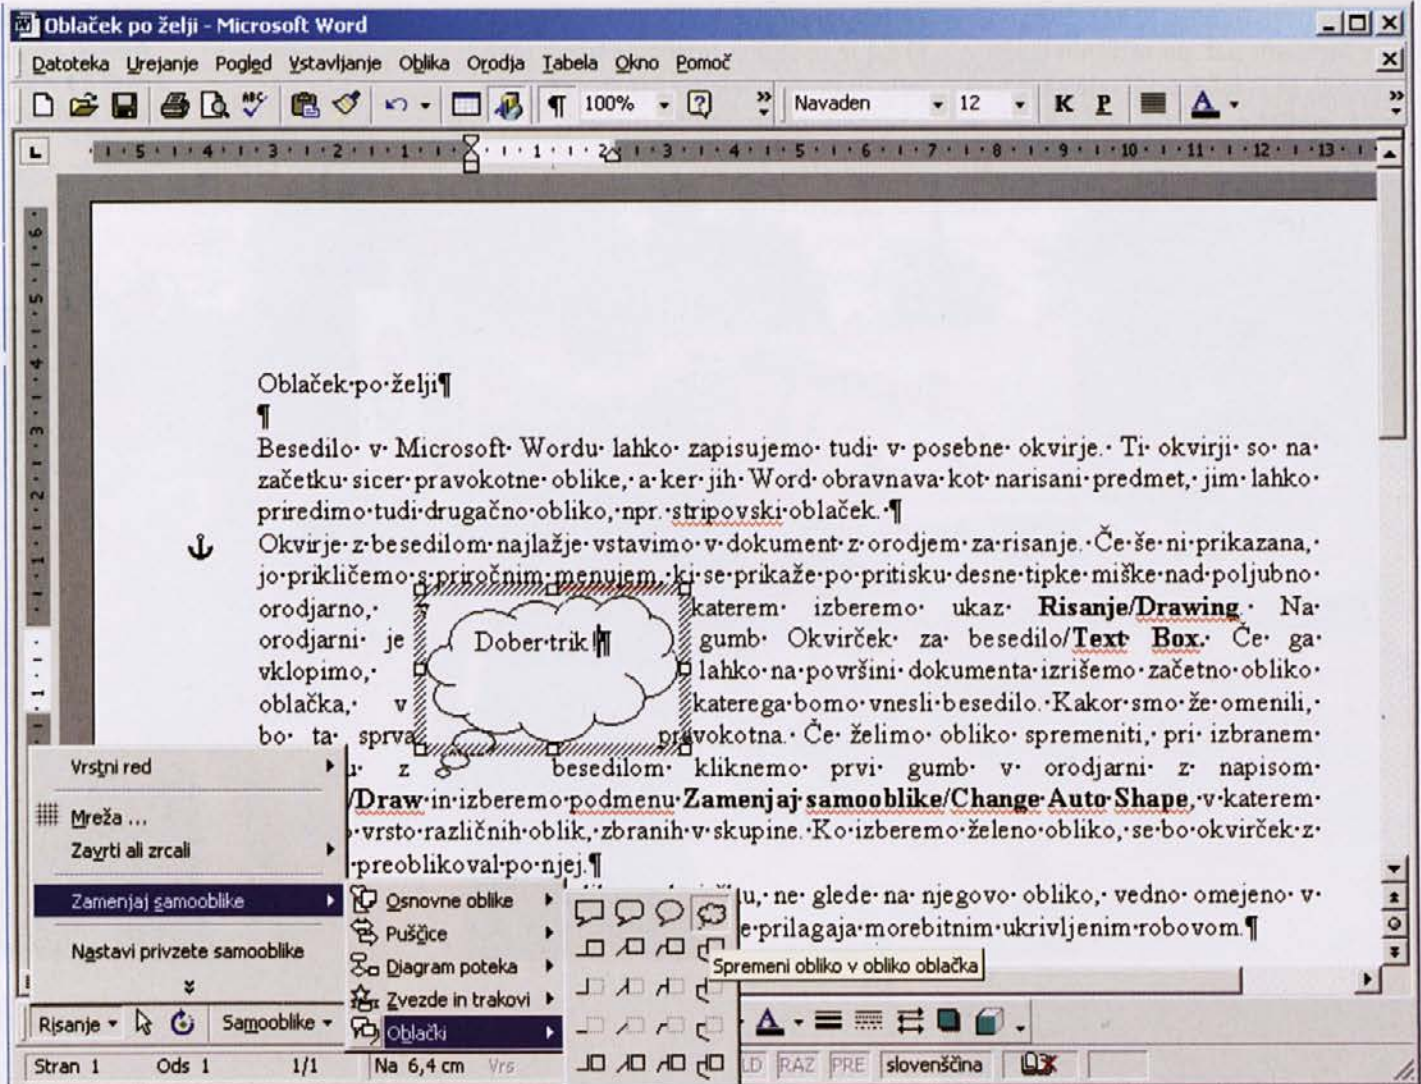 Oblaček po želji - Microsoft Word
Datoteka Urejanje Pogled Vstavljanje Oblika Orodja Tabela Okno Pomoč
100% Navaden 12 K P A
5 4 3 2 1 1 2 3 4 5 6 7 8 9 10 11 12 13
Oblaček·po·želji¶
¶
Besedilo· v· Microsoft· Wordu· lahko· zapisujemo· tudi· v· posebne· okvirje.· Ti· okvirji· so· na·
začetku·sicer·pravokotne·oblike,·a·ker·jih·Word·obravnava·kot·narisani·predmet,·jim·lahko·
priredimo·tudi·drugačno·obliko,·npr.·stripovski·oblaček.·¶
Okvirje·z·besedilom·najlažje·vstavimo·v·dokument·z·orodjem·za·risanje.·Če·še·ni·prikazana,·
jo·prikličemo·s·priročnim·menujem,·ki·se·prikaže·po·pritisku·desne·tipke·miške·nad·poljubno·
orodjarno,· v katerem· izberemo· ukaz· Risanje/Drawing.· Na·
orodjarni· je gumb· Okvirček· za· besedilo/Text· Box.· Če· ga·
vklopimo,· lahko·na·površini·dokumenta·izrišemo·začetno·obliko·
oblačka,· v katerega·bomo·vnesli·besedilo.·Kakor·smo·že·omenili,·
bo· ta· sprva pravokotna.· Če· želimo· obliko· spremeniti,· pri· izbranem·
Dober·trik!¶
z· besedilom· kliknemo· prvi· gumb· v· orodjarni· z· napisom·
/Draw·in·izberemo·podmenu·Zamenjaj·samooblike/Change·Auto·Shape,·v·katerem·
vrsto·različnih·oblik,·zbranih·v·skupine.·Ko·izberemo·želeno·obliko,·se·bo·okvirček·z·
·preoblikoval·po·njej.¶
ne· glede· na· njegovo· obliko,· vedno· omejeno· v·
prilagaja·morebitnim·ukrivljenim·robovom.¶
Vrstni red
Mreža ...
Zavrti ali zrcali
Zamenjaj samooblike
Nastavi privzete samooblike
Osnovne oblike
Puščice
Diagram poteka
Zvezde in trakovi
Oblački
Spremeni obliko v obliko oblačka
Risanje Samooblike A
Stran 1 Ods 1 1/1 Na 6,4 cm Vrs RAZ PRE slovenščina